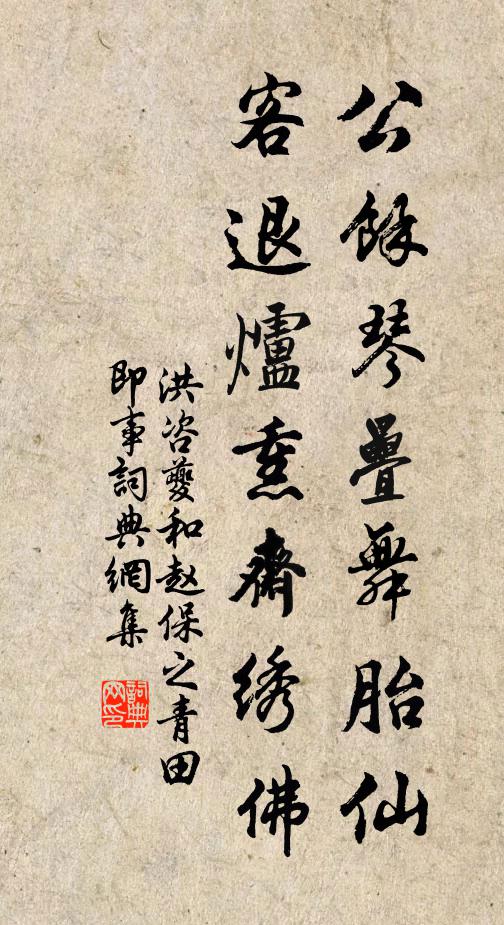 公餘琴疊舞胎仙
客退爐熏齋绣佛
洪咨夔和赵保之青田
即事詞典網集
詞典网印